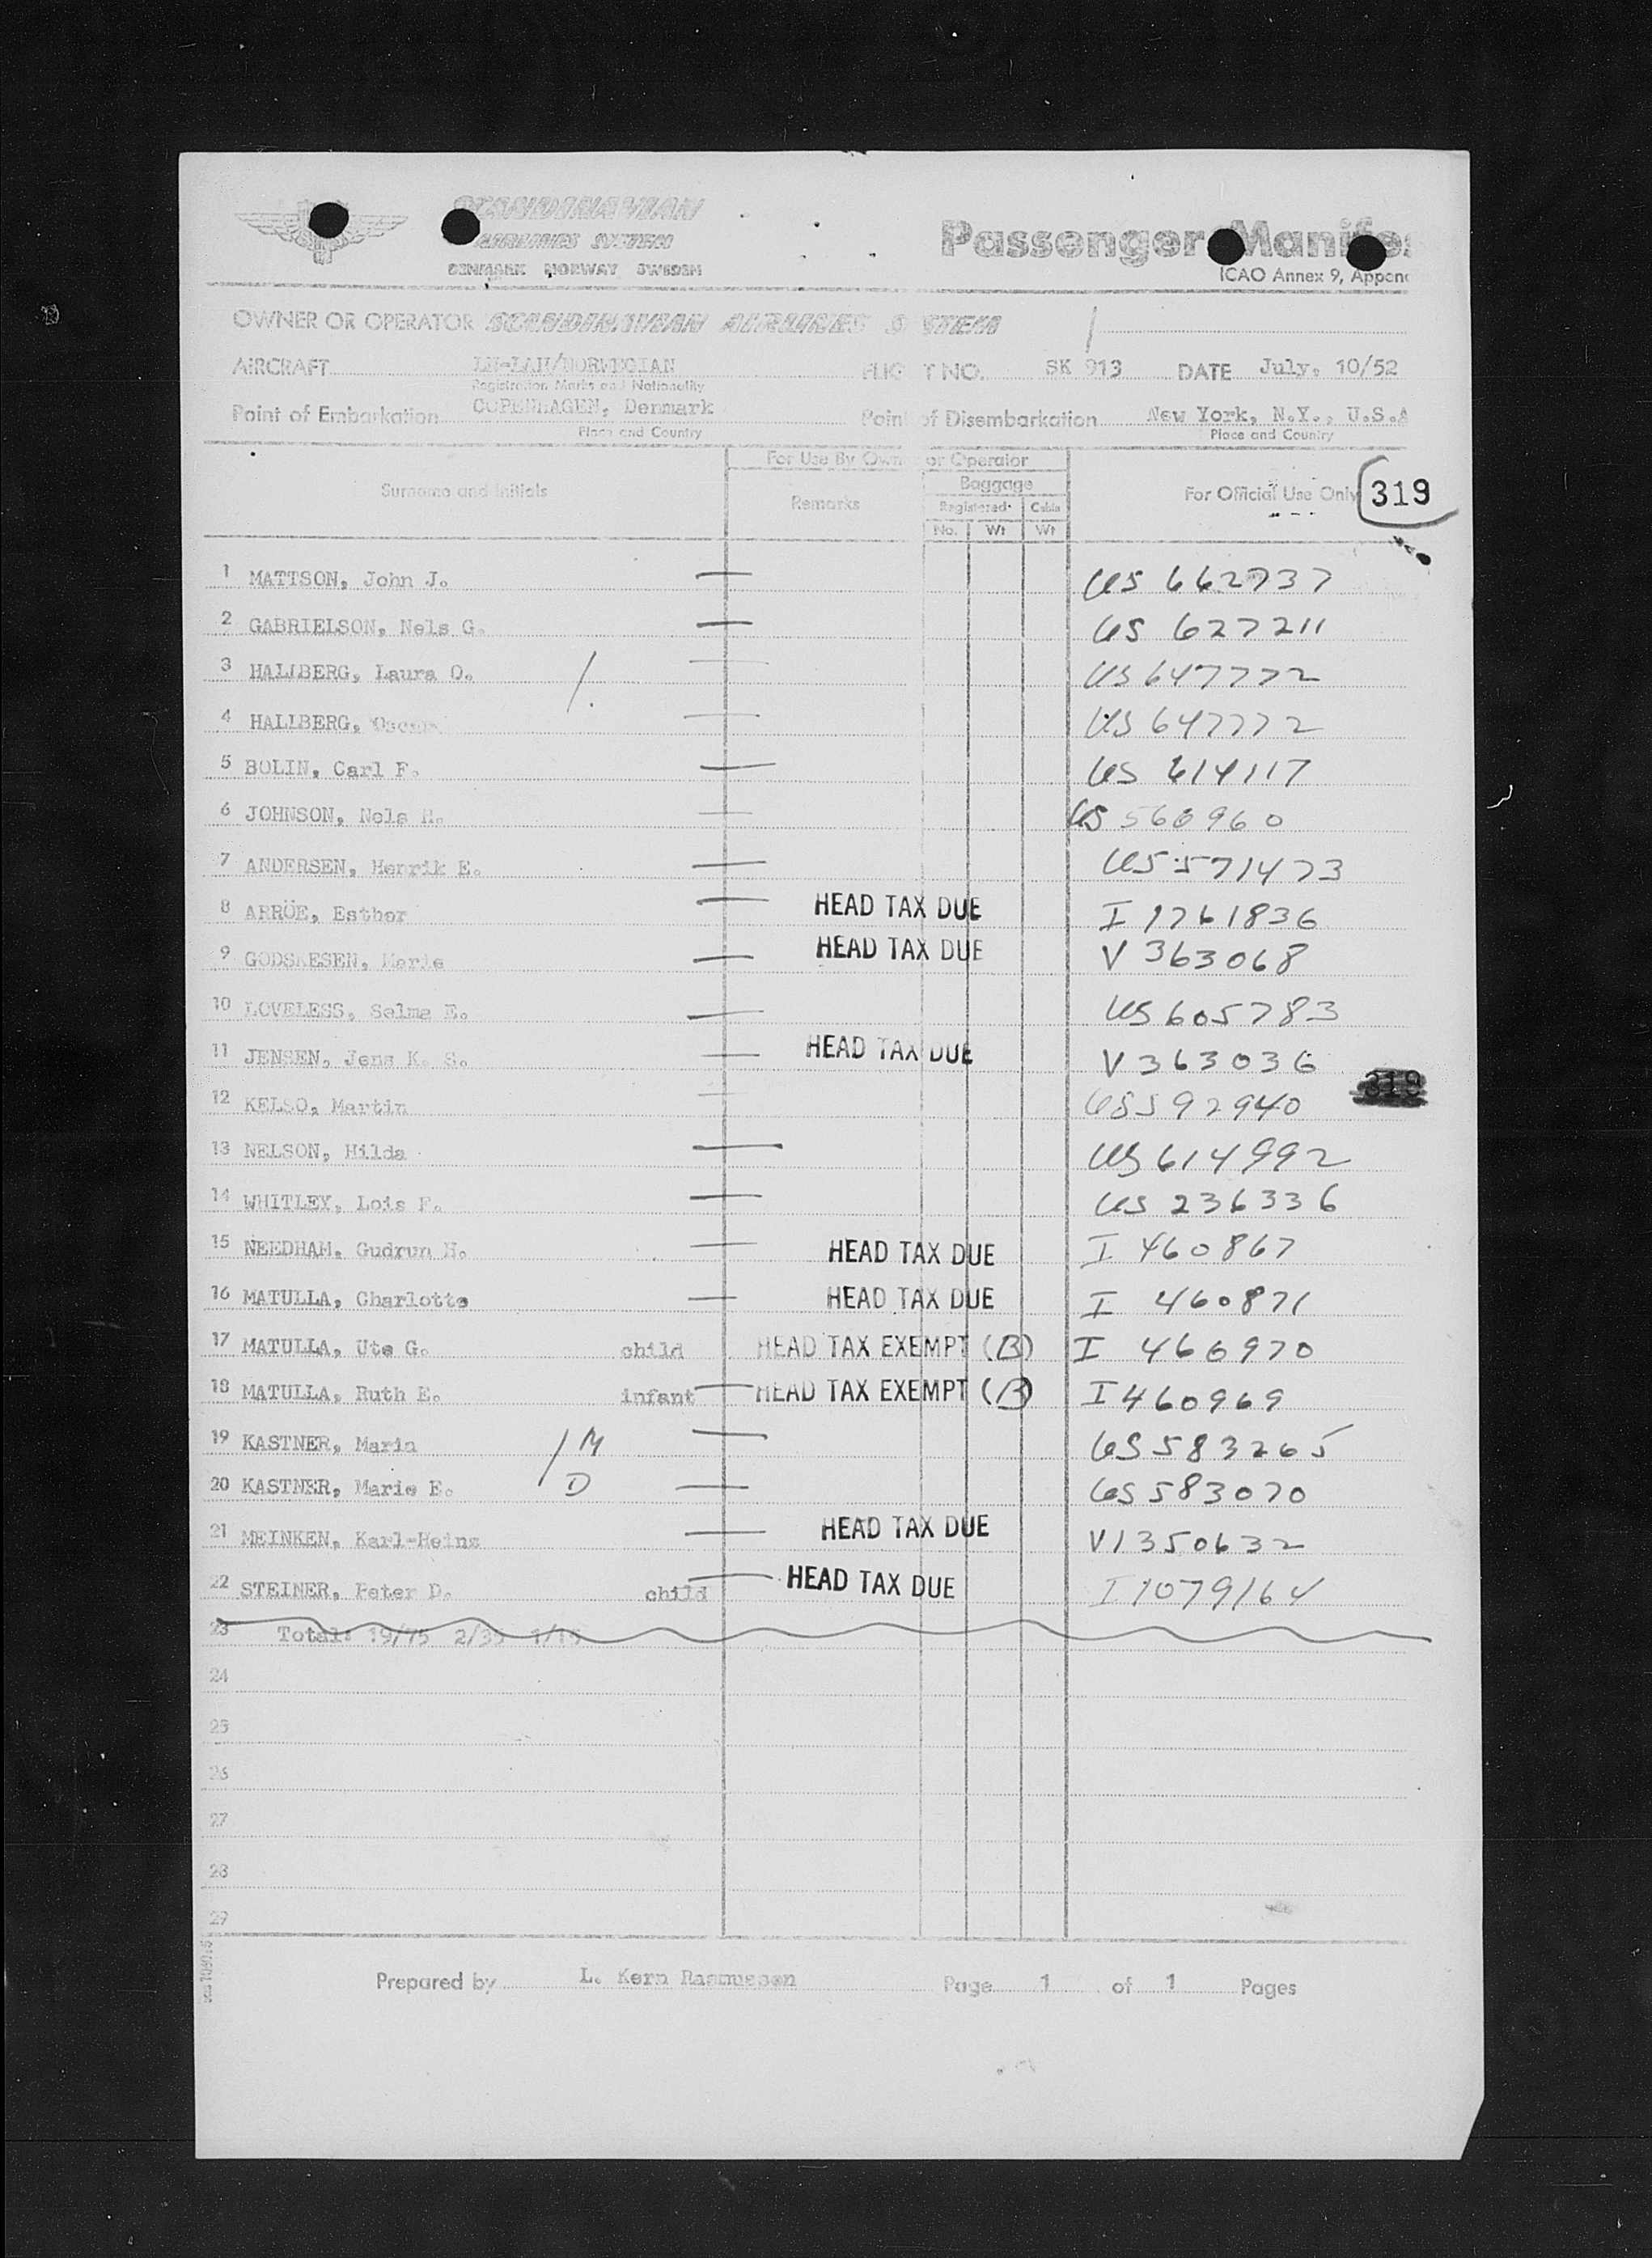 SCANDINAVIAN
AIRLINES SYSTEM
DENMARK NORWAY SWEDEN
Passenger Manifes
(ICAO Annex 9, Append
OWNER OR OPERATOR SCANDINAVIAN AIRLINES SYSTEM
AIRCRAFT NORWEGIAN FLIGHT NO. SK 913 DATE July. 10/52
Registration Marks and Nationality
Point of Embarkation COPENHAGEN, Denmark Point of Disembarkation New York, N.Y., U.S.A
Place and Country Place and Country
For Use By Owner or Operator
Surname and Initials Remarks Baggage For Official Use Only 319
Registered Cabin
No. Wt Wt
1 MATTSON, John J. US 662737
2 GABRIELSON, Nels G. US 627211
3 HALLBERG, Laura O. US 647772
4 HALLBERG, Oscar US 647772
5 BOLIN, Carl F. US 614117
6 JOHNSON, Nels H. US 566960
7 ANDERSEN, Henrik E. US 571473
8 ARRÖE, Esther HEAD TAX DUE I 1261836
9 GODSKESEN, Marie HEAD TAX DUE V 363068
10 LOVELESS, Selma E. US 605783
11 JENSEN, Jens K. S. HEAD TAX DUE V 363036
12 KELSO, Martin US 592940 319
13 NELSON, Hilda US 614992
14 WHITLEY, Lois F. US 236336
15 NEEDHAM, Gudrun H. HEAD TAX DUE I 460867
16 MATULLA, Charlotte HEAD TAX DUE I 460871
17 MATULLA, Ute G. child HEAD TAX EXEMPT (B) I 466970
18 MATULLA, Ruth E. infant HEAD TAX EXEMPT (B) I 460969
19 KASTNER, Maria M US 583265
20 KASTNER, Marie E. D US 583070
21 MEINKEN, Karl-Heinz HEAD TAX DUE V 1350632
22 STEINER, Peter D. child HEAD TAX DUE I 1079164
23 Total: 19/75 2/35
24
25
26
27
28
29
Prepared by L. Kern Rasmussen Page 1 of 1 Pages